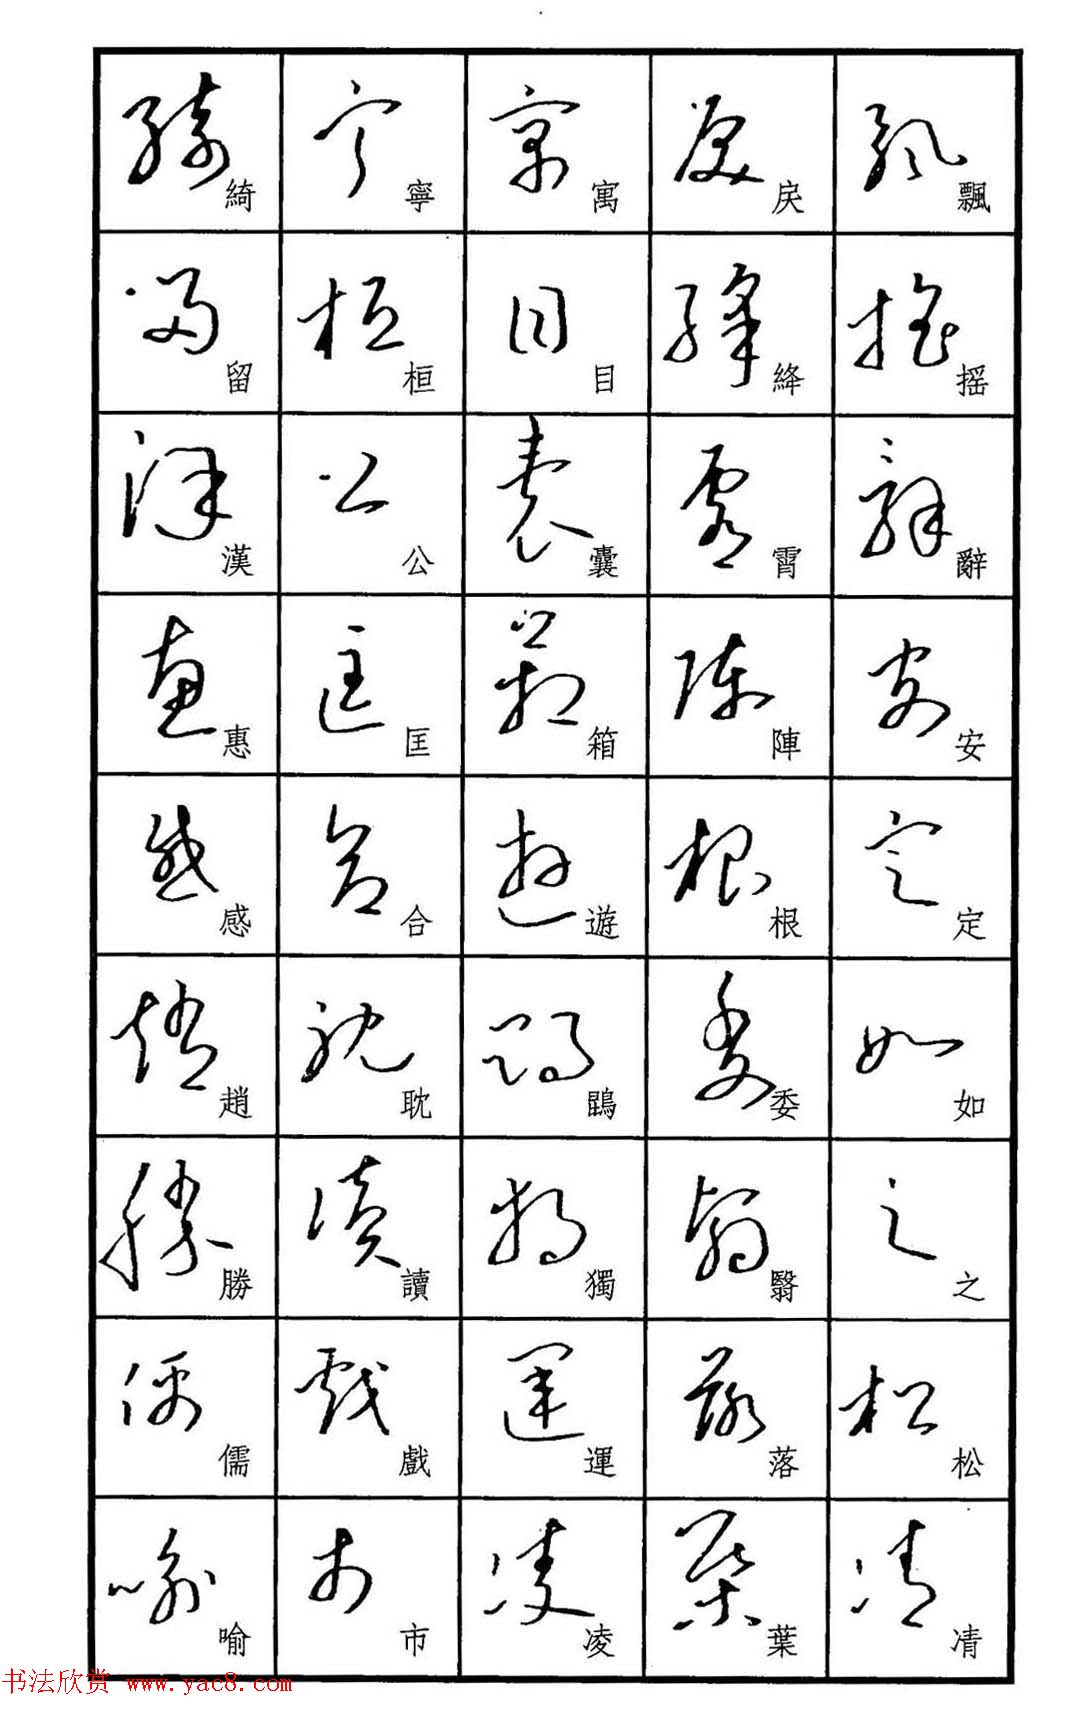 飄摇辭安定如之松凊
戾絳霄陣根委翳落葉
寓目囊箱遊鵾獨運凌
寧桓公匡合耽讀戲市
綺留漢惠感趙勝儒喻
书法欣赏 www.yac8.com